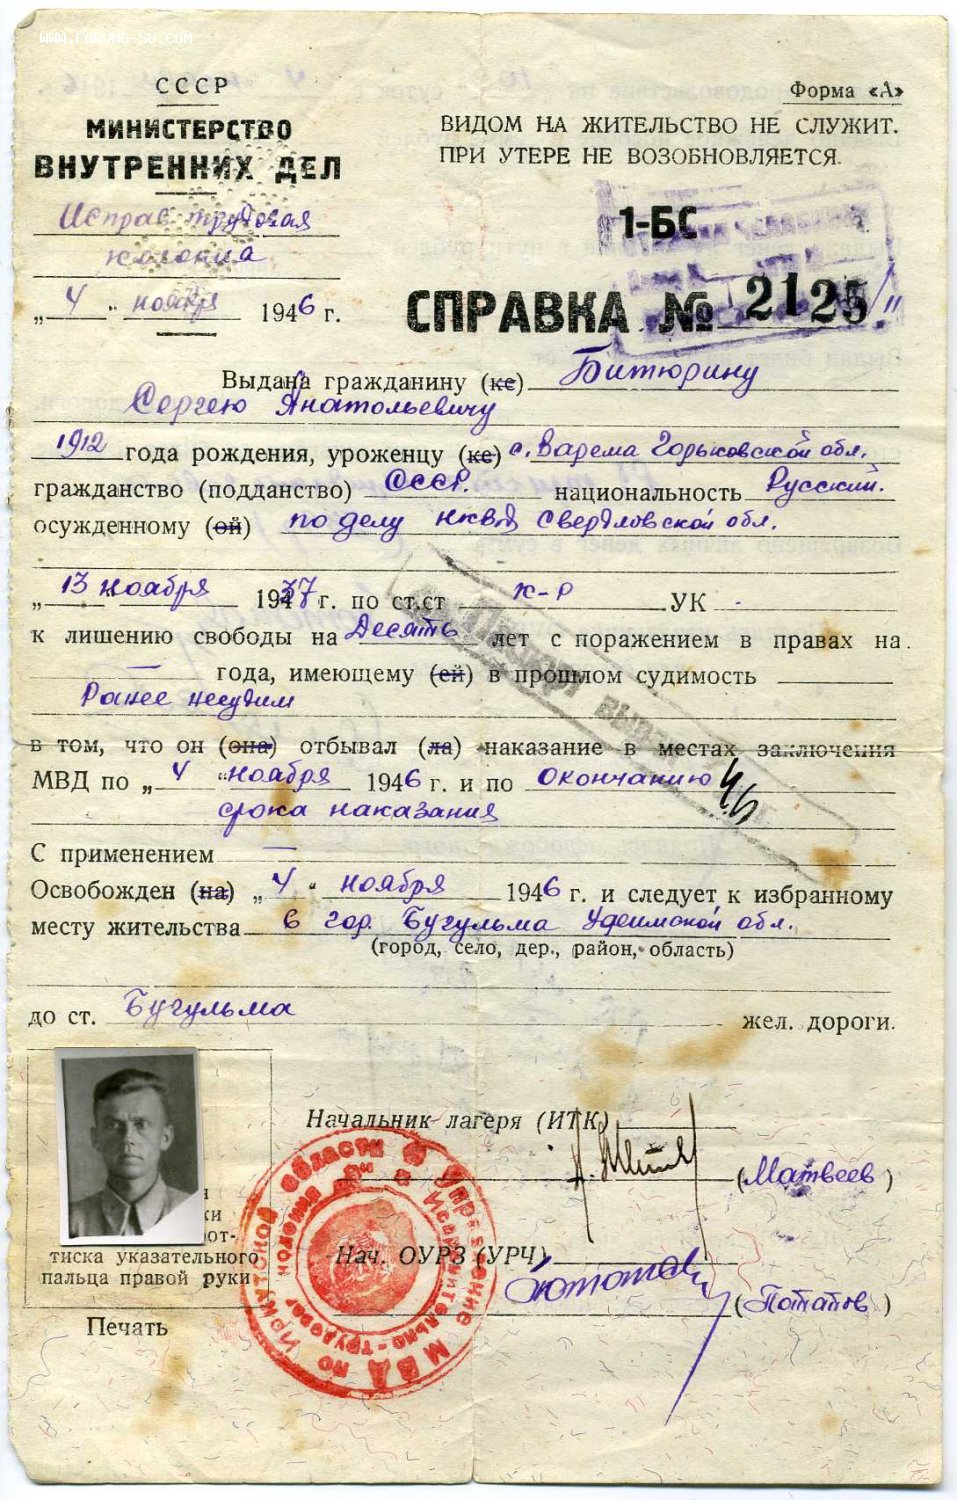 WWW.FORUMS-SU.COM
СССР
МИНИСТЕРСТВО
ВНУТРЕННИХ ДЕЛ
Исправ. трудовая
колония
„4" ноября 1946 г.
Форма «А»
ВИДОМ НА ЖИТЕЛЬСТВО НЕ СЛУЖИТ.
ПРИ УТЕРЕ НЕ ВОЗОБНОВЛЯЕТСЯ.
1-БС
СПРАВКА № 2125
Выдана гражданину (ке) Битюрину
Сергею Анатольевичу
1912 года рождения, уроженцу (ке) с. Варема Горьковской обл.
гражданство (подданство) СССР. национальность Русский.
осужденному (ой) по делу НКВД Свердловской обл.
„13 ноября 1937 г. по ст.ст к-р УК
к лишению свободы на Десять лет с поражением в правах на
— года, имеющему (ей) в прошлом судимость
Ранее несудим
в том, что он (она) отбывал (ла) наказание в местах заключения
МВД по „4" ноября 1946 г. и по окончанию
срока наказания
С применением —
Освобожден (на) „4" ноября 1946 г. и следует к избранному
месту жительства в гор. Бугульма Уфимской обл.
(город, село, дер., район, область)
до ст. Бугульма жел. дороги.
Начальник лагеря (ИТК)
(Матвеев)
Нач. ОУРЗ (УРЧ)
(Потапов)
тиска указательного
пальца правой руки
Печать
Управление МВД по Иркутской области
Исправительно-трудовая колония